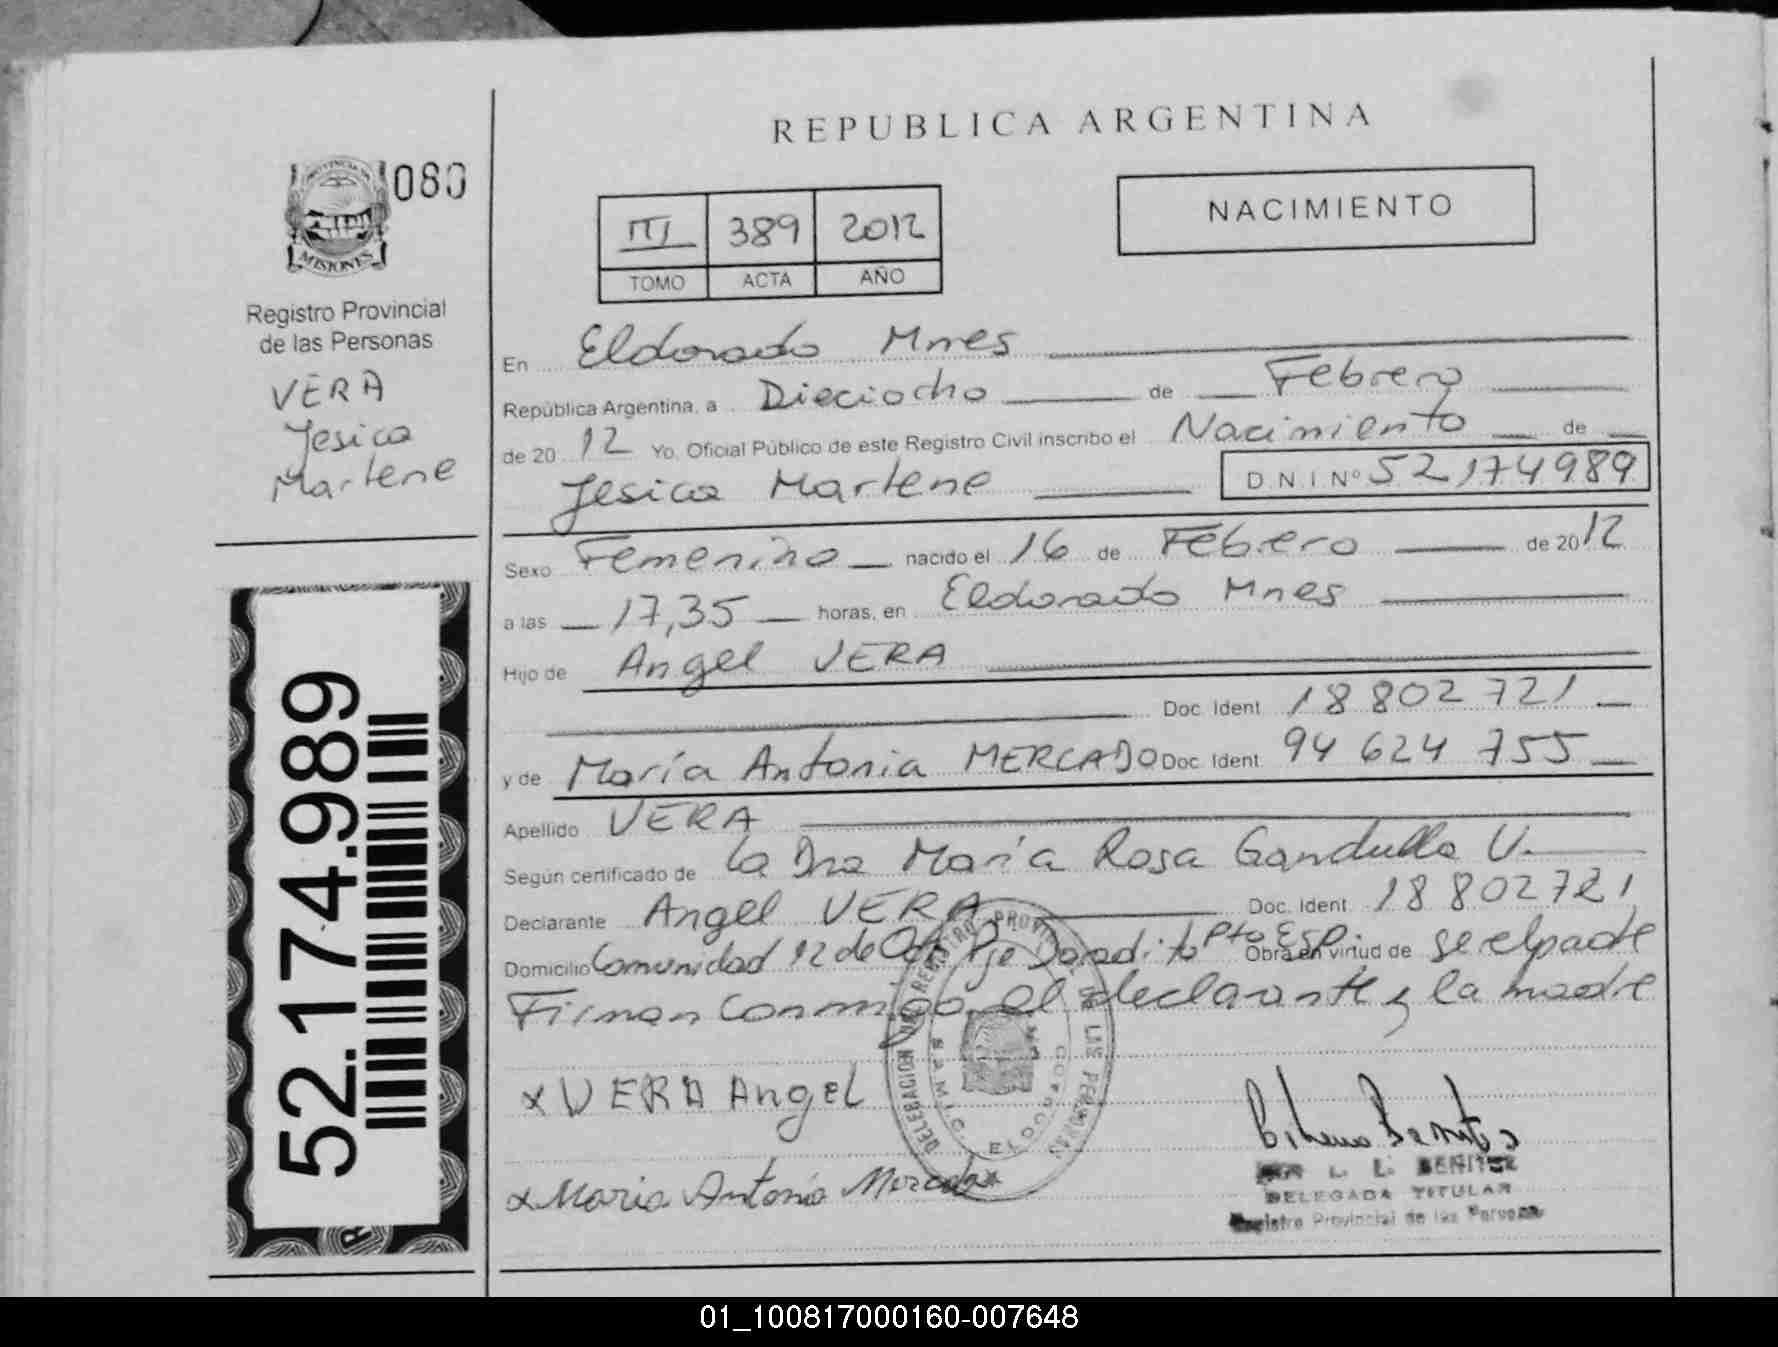 REPUBLICA ARGENTINA
080
PROVINCIA DE
MISIONES
Registro Provincial
de las Personas
VERA
Jesica
Marlene
52.174.989
III 389 2012
TOMO ACTA AÑO
NACIMIENTO
En Eldorado Mnes
República Argentina, a Dieciocho de Febrero
de 20 12 Yo, Oficial Público de este Registro Civil inscribo el Nacimiento de
Jesica Marlene D.N.I Nº 52174989
Sexo Femenino nacido el 16 de Febrero de 2012
a las 17,35 horas, en Eldorado Mnes
Hijo de Angel VERA
Doc. Ident. 18 802 721
y de María Antonia MERCADO Doc. Ident. 94 624 755
Apellido VERA
Según certificado de la Dra María Rosa Gandulla V.
Declarante Angel VERA Doc. Ident. 18 802721
Domicilio Comunidad 12 de Oct Pje Doradito Pto Esp. Obra en virtud de ser el padre
Firman conmigo el declarante y la madre
x VERA Angel
x Maria Antonia Mercado
DELEGACION DEL REGISTRO PROVINCIAL DE LAS PERSONAS
S.A.M.I.C. ELDORADO
L. E. BENITEZ
DELEGADA TITULAR
Registro Provincial de las Personas
01_100817000160-007648